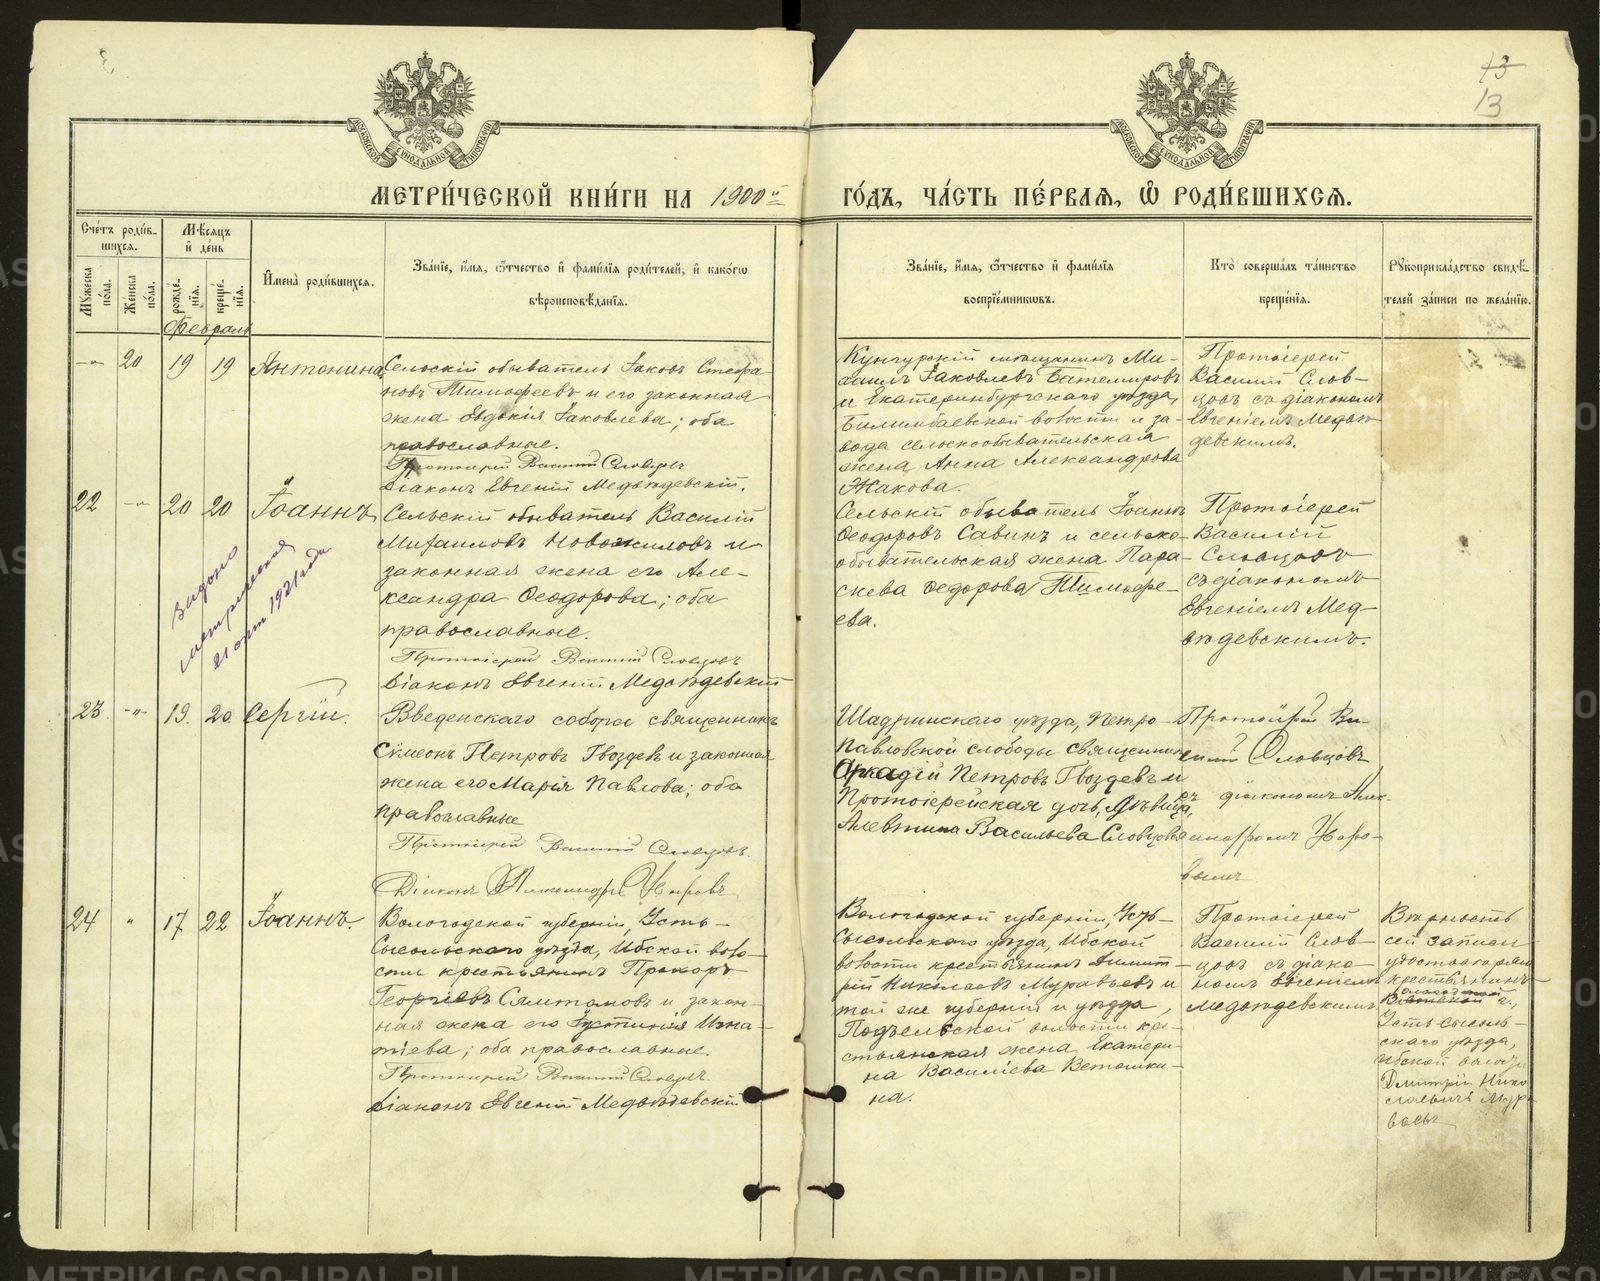 13
13
МОСКОВСКОЙ СѴНОДАЛЬНОЙ ТИПОГРАФІИ
МОСКОВСКОЙ СѴНОДАЛЬНОЙ ТИПОГРАФІИ
МЕТРИ́ЧЕСКОЙ КНИ́ГИ НА 1900й
ГО́ДЪ, ЧА́СТЬ ПЕ́РВАѦ, Ѡ РОДИ́ВШИХСѦ.
Сче́тъ роди́в-
шихсѧ.
Мꙋ́жеска по́ла.
Же́нска по́ла.
Мѣ́сѧцъ
и҆ де́нь
рожде́-
нїѧ.
креще́-
нїѧ.
И҆мена̀ роди́вшихсѧ.
Зва́нїе, и҆́мѧ, ѻ҆́тчество и҆ фами́лїѧ роди́телей, и҆ како́гѡ
вѣроисповѣ́данїѧ.
Зва́нїе, и҆́мѧ, ѻ҆́тчество и҆ фами́лїѧ
воспрїе́мникѡвъ.
Кто̀ соверша́лъ та́инство
креще́нїѧ.
Рꙋкоприкла́дство свидѣ́-
телей за́писи по жела́нїю.
Февраль
-"- 20 19 19 Антонина
Сельскій обыватель Іаковъ Стефа-
новъ Тимофеевъ и его законная
жена Евдокія Іаковлева; оба
православные.
Протоіерей Василій Словцовъ
Діаконъ Евгеній Медвѣдевскій.
Кунгурскій мѣщанинъ Ми-
хаилъ Іаковлевъ Батемировъ
и Екатеринбургскаго уѣзда,
Билимбаевской волости и за-
вода сельскообывательская
жена Анна Александрова
Жакова.
Протоіерей
Василій Слов-
цовъ съ діакономъ
Евгеніемъ Медвѣ-
девскимъ.
22 -"- 20 20 Іоаннъ
Выдано
метрическая
21 окт 1921 года
Сельскій обыватель Василій
Михаиловъ Новожиловъ и
законная жена его Але-
ксандра Ѳеодорова; оба
православные.
Протоіерей Василій Словцовъ
Діаконъ Евгеній Медвѣдевскій
Сельскій обыватель Іоаннъ
Ѳеодоровъ Савинъ и сельско-
обывательская жена Пара-
скева Ѳедорова Тимофе-
ева.
Протоіерей
Василій
Словцовъ
съ діакономъ
Евгеніемъ Мед-
вѣдевскимъ.
23. -"- 19. 20. Сергій.
Введенскаго собора священникъ
Сѵмеонъ Петровъ Гвоздевъ и законная
жена его Марія Павлова; оба
православные
Протоіерей Василій Словцовъ.
Діаконъ Александръ Уваровъ
Шадринскаго уѣзда, Петро-
Павловской слободы священникъ
Аркадій Петровъ Гвоздевъ и
Протоіерейская дочь, дѣвица,
Алевтина Васильева Словцова
Протоіерей Ва-
силій Словцовъ
съ діакономъ Алек-
сандромъ Уваро-
вымъ
24 " 17 22 Іоаннъ.
Вологодской губерніи, Усть-
Сысольскаго уѣзда, Ибской воло-
сти крестьянинъ Прохоръ
Георгіевъ Сямтомовъ и закон-
ная жена его Іустинія Игна-
тіева; оба православные.
Протоіерей Василій Словцовъ.
Діаконъ Евгеній Медвѣдевскій
Вологодской губерніи, Усть-
Сысольскаго уѣзда, Ибской
волости крестьянинъ Димит-
рій Николаевъ Муравьевъ и
той же губерніи и уѣзда,
Подъельской волости кре-
стьянская жена Екатери-
на Василіева Ветошки-
на.
Протоіерей
Василій Слов-
цовъ съ діако-
номъ Евгеніемъ
Медвѣдевскимъ
Вѣрность
сей записи
удостовѣряю
крестьянинъ
Вологодской г.,
Усть Сысоль-
скаго уѣзда,
Ибской волости
Дмитрій Нико
лаевичъ Мура
вьевъ
METRIKI.GASO-URAL.RU